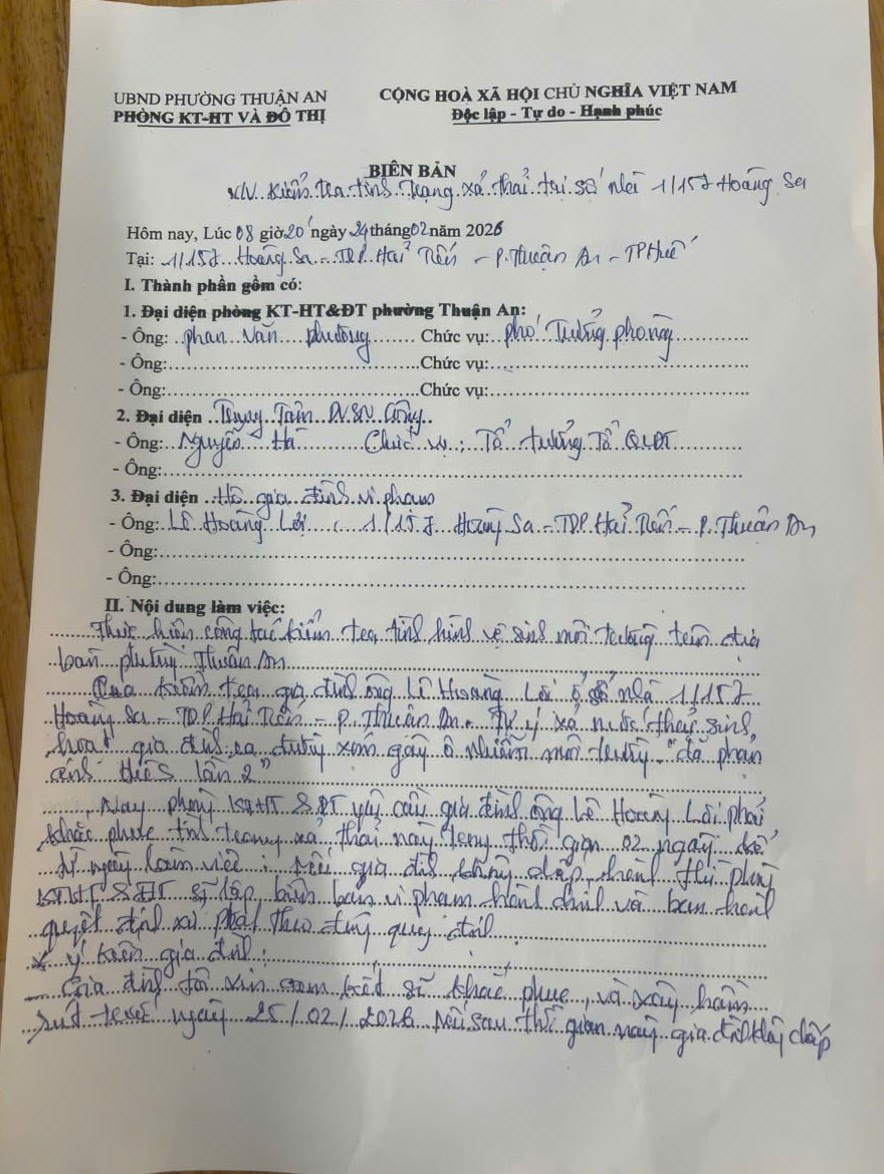 UBND PHƯỜNG THUẬN AN
PHÒNG KT-HT VÀ ĐÔ THỊ
CỘNG HOÀ XÃ HỘI CHỦ NGHĨA VIỆT NAM
Độc lập - Tự do - Hạnh phúc
BIÊN BẢN
V/v Kiểm tra tình trạng xả thải tại số nhà 1/157 Hoàng Sa
Hôm nay, Lúc 08 giờ 20' ngày 24 tháng 02 năm 2026
Tại: 1/157 Hoàng Sa - TDP. Hải Tiến - P. Thuận An - TP Huế
I. Thành phần gồm có:
1. Đại diện phòng KT-HT&ĐT phường Thuận An:
- Ông: Phan Văn Phường Chức vụ: Phó Trưởng phòng
- Ông: Chức vụ:
- Ông: Chức vụ:
2. Đại diện Trung Tâm DVSN Công
- Ông: Nguyễn Hà Chức vụ: Tổ trưởng Tổ QLĐT
- Ông:
3. Đại diện Hộ gia đình vi phạm
- Ông: Lê Hoàng Lợi, 1/157 Hoàng Sa - TDP. Hải Tiến - P. Thuận An
- Ông:
- Ông:
II. Nội dung làm việc:
Thực hiện công tác kiểm tra tình hình vệ sinh môi trường trên địa
bàn phường Thuận An
Qua kiểm tra gia đình ông Lê Hoàng Lợi ở số nhà 1/157
Hoàng Sa - TDP. Hải Tiến - P. Thuận An. Tự ý xả nước thải sinh
hoạt gia đình ra đường xóm gây ô nhiễm môi trường. "đã phản
ánh HueS lần 2"
Nay phòng KTHT&ĐT yêu cầu gia đình ông Lê Hoàng Lợi phải
khắc phục tình trạng xả thải này trong thời gian 02 ngày kể
từ ngày làm việc; nếu gia đình không chấp hành thì phòng
KTHT&ĐT sẽ lập biên bản vi phạm hành chính và ban hành
quyết định xử phạt theo đúng quy định
* Ý kiến gia đình:
- Gia đình tôi xin cam kết sẽ khắc phục, và xây hầm
rút trước ngày 25/02/2026. Nếu sau thời gian này gia đình không chấp